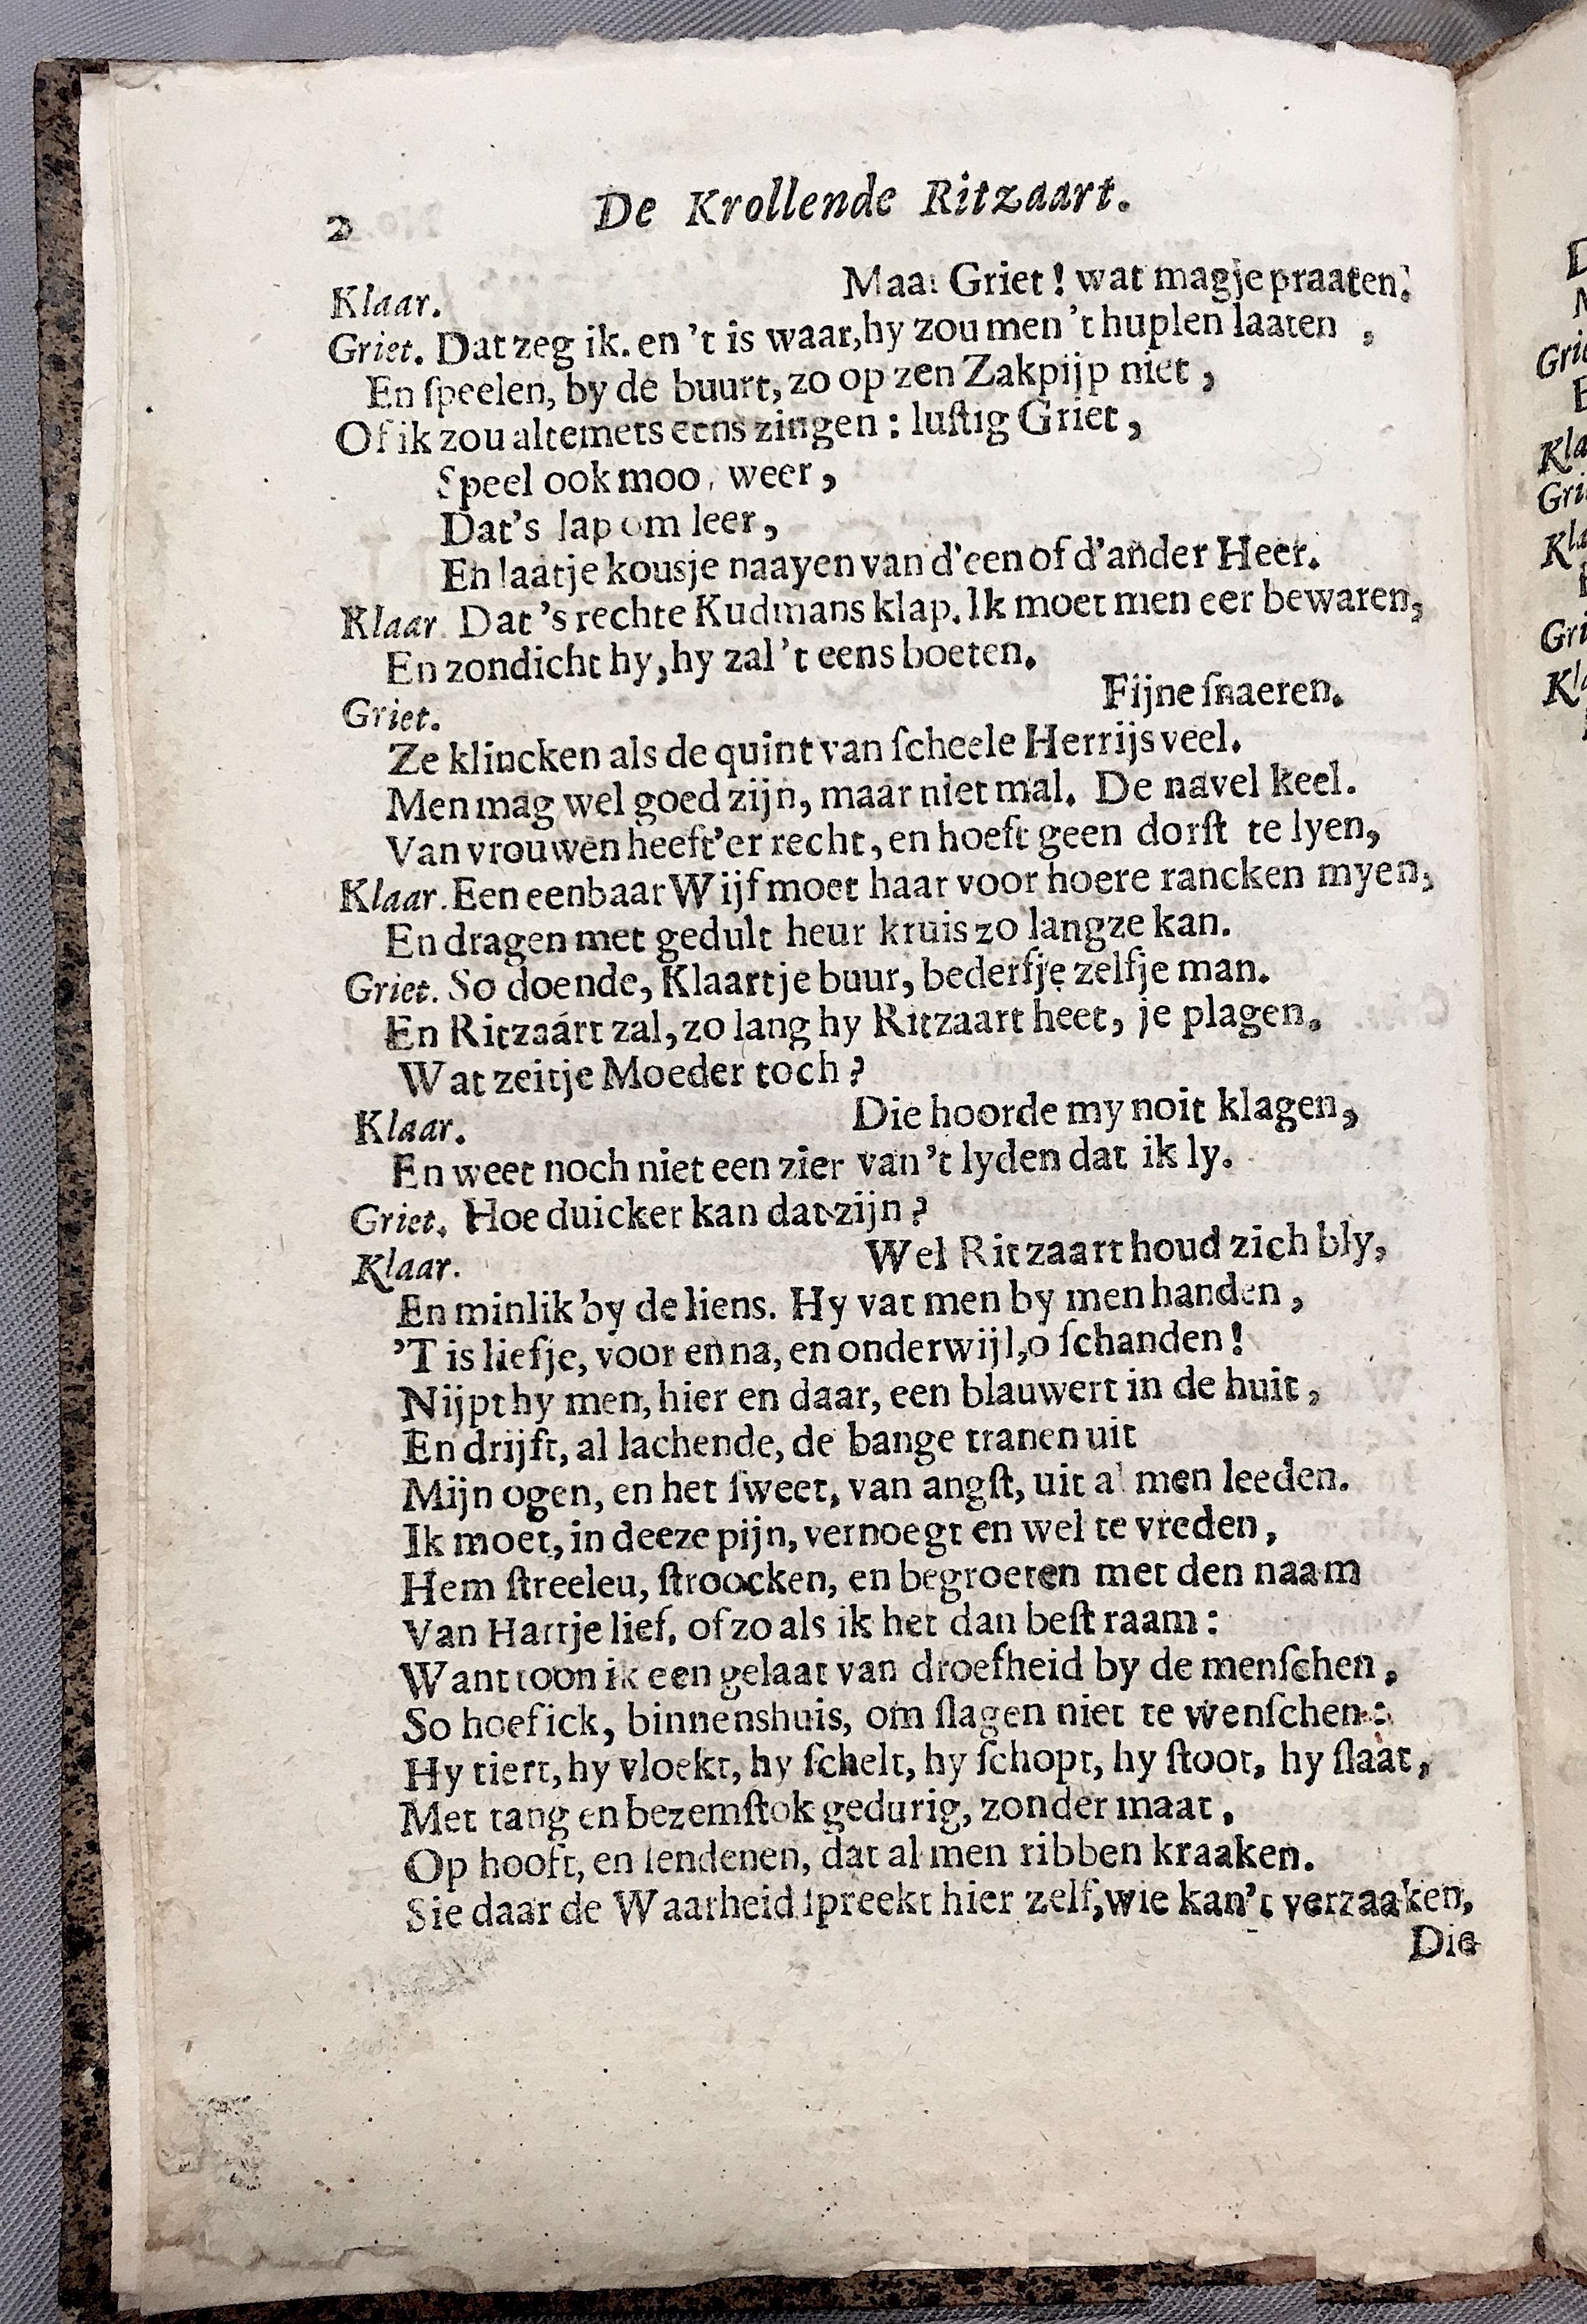 2 De Krollende Ritzaart.
Klaar. Maar Griet! wat magje praaten.
Griet. Dat zeg ik. en 't is waar, hy zou men 't huplen laaten,
En ſpeelen, by de buurt, zo op zen Zakpijp niet,
Of ik zou altemets eens zingen: luſtig Griet,
Speel ook mooi weer,
Dat's lap om leer,
En laatje kousje naayen van d'een of d'ander Heer.
Klaar. Dat 's rechte Kudmans klap. Ik moet men eer bewaren,
En zondicht hy, hy zal 't eens boeten.
Griet. Fijne ſnaeren.
Ze klincken als de quint van ſcheele Herrijs veel.
Men mag wel goed zijn, maar niet mal. De navel keel.
Van vrouwen heeft'er recht, en hoeft geen dorſt te lyen,
Klaar. Een eenbaar Wijf moet haar voor hoere rancken myen,
En dragen met gedult heur kruis zo langze kan.
Griet. So doende, Klaartje buur, bederfje zelfje man.
En Ritzaárt zal, zo lang hy Ritzaart heet, je plagen.
Wat zeitje Moeder toch?
Klaar. Die hoorde my noit klagen,
En weet noch niet een zier van 't lyden dat ik ly.
Griet. Hoe duicker kan dat zijn?
Klaar. Wel Ritzaart houd zich bly,
En minlik by de liens. Hy vat men by men handen,
'T is liefje, voor en na, en onderwijl, o ſchanden!
Nijpt hy men, hier en daar, een blauwert in de huit,
En drijft, al lachende, de bange tranen uit
Mijn ogen, en het ſweet, van angſt, uit al men leeden.
Ik moet, in deeze pijn, vernoegt en wel te vreden,
Hem ſtreeleu, ſtroocken, en begroeten met den naam
Van Hartje lief, of zo als ik het dan beſt raam:
Want toon ik een gelaat van droefheid by de menſchen,
So hoef ick, binnenshuis, om ſlagen niet te wenſchen:
Hy tiert, hy vloekt, hy ſchelt, hy ſchopt, hy ſtoot, hy ſlaat,
Met tang en bezemſtok gedurig, zonder maat,
Op hooft, en lendenen, dat al men ribben kraaken.
Sie daar de Waarheid ſpreekt hier zelf, wie kan't verzaaken,
Die